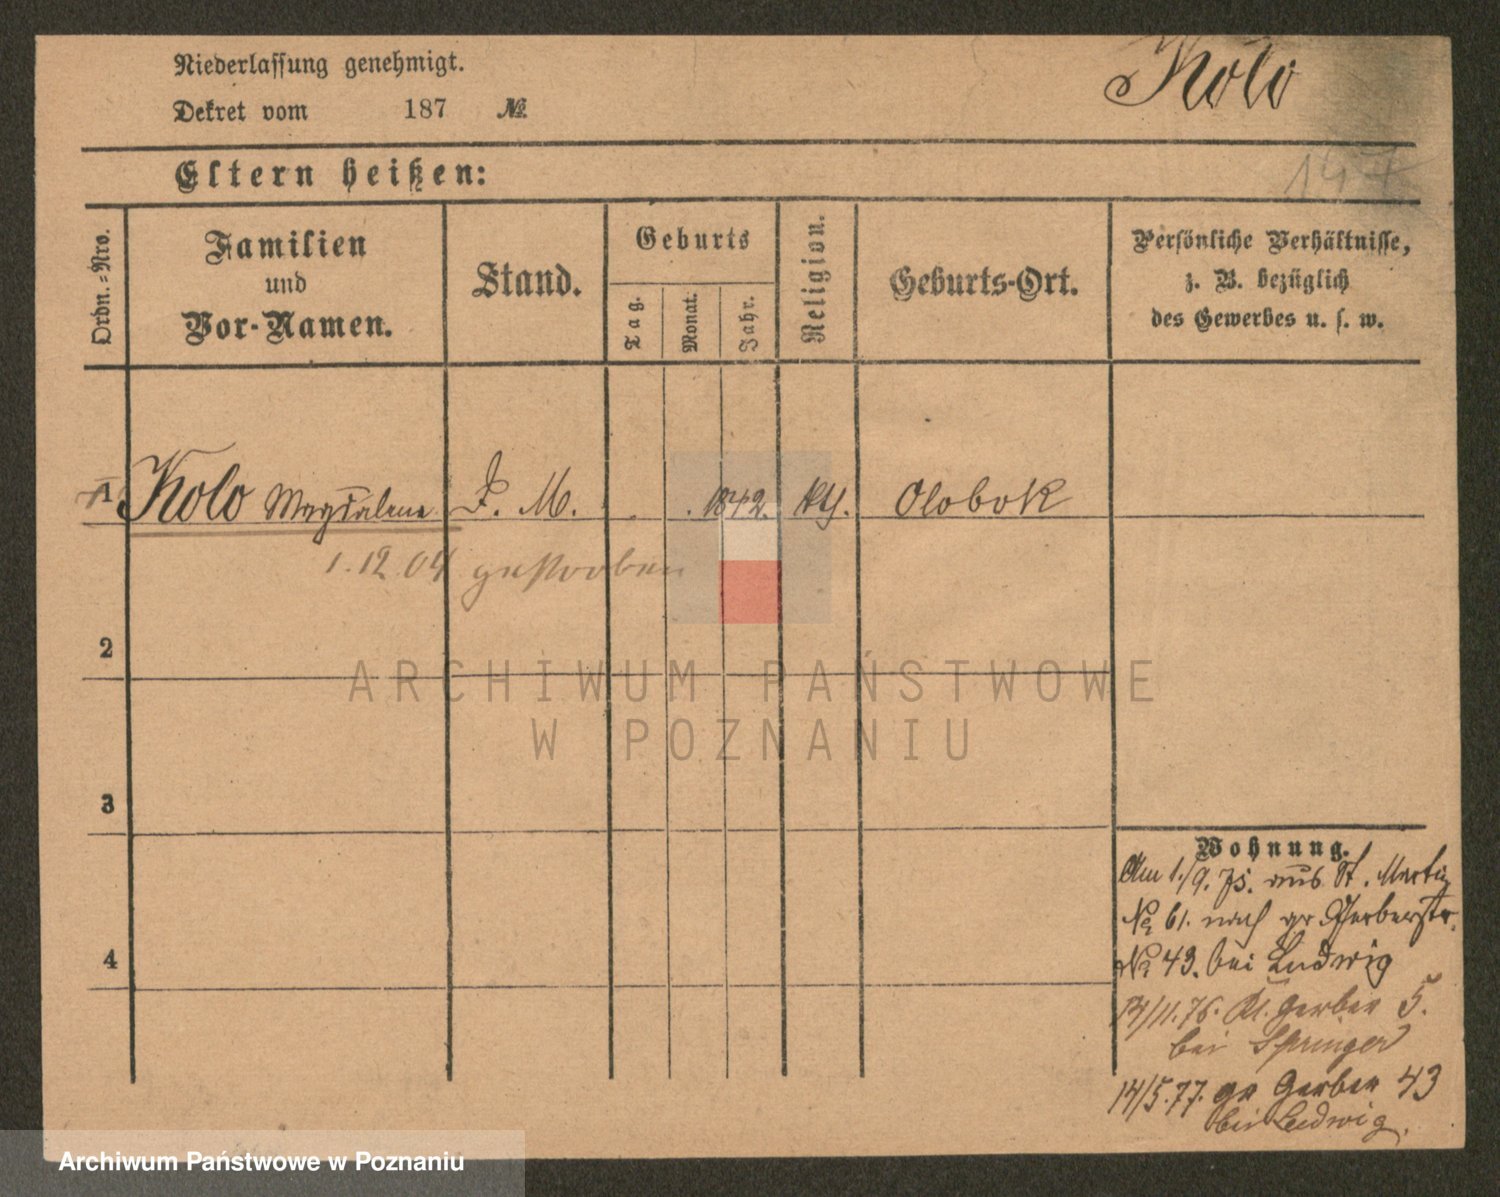 Niederlassung genehmigt.
Kolo
Dekret vom 187 №
147
Eltern heißen:
Ordn.-Nro.
Familien
und
Vor-Namen.
Stand.
Geburts
Tag.
Monat.
Jahr.
Religion.
Geburts-Ort.
Persönliche Verhältnisse,
z. B. bezüglich
des Gewerbes u. s. w.
1 Kolo Magdalena D. M. 1842. kth. Olobok
1.12.04 gestorben
2
3
4
Wohnung.
Am 1./9. 75. aus St. Martin
№ 61. nach gr Gerberstr.
№ 43. bei Ludwig
14/11.76. Kl. Gerber 5.
bei Springer
14/5.77. gr Gerber 43
bei Ludwig.
ARCHIWUM PAŃSTWOWE
W POZNANIU
Archiwum Państwowe w Poznaniu